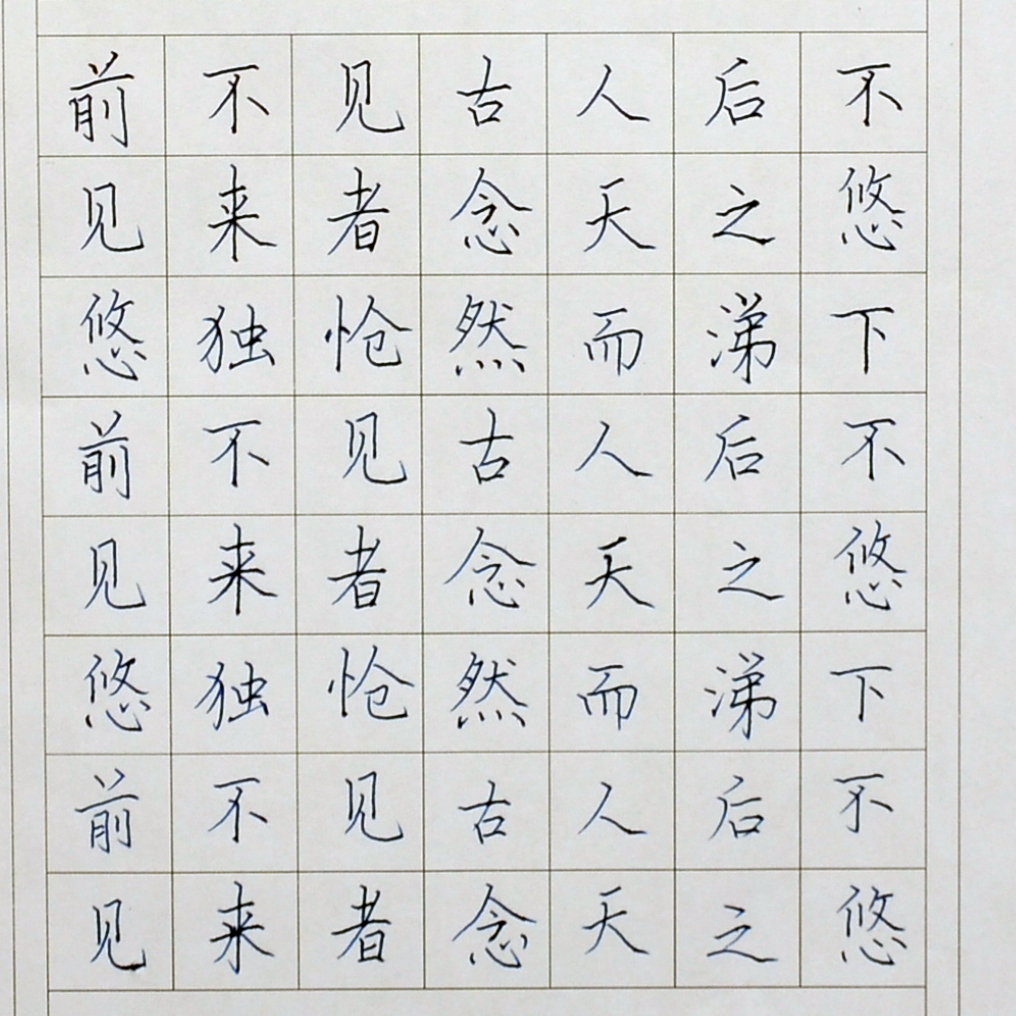 前不见古人后不
见来者念天之悠
悠独怆然而涕下
前不见古人后不
见来者念天之悠
悠独怆然而涕下
前不见古人后不
见来者念天之悠